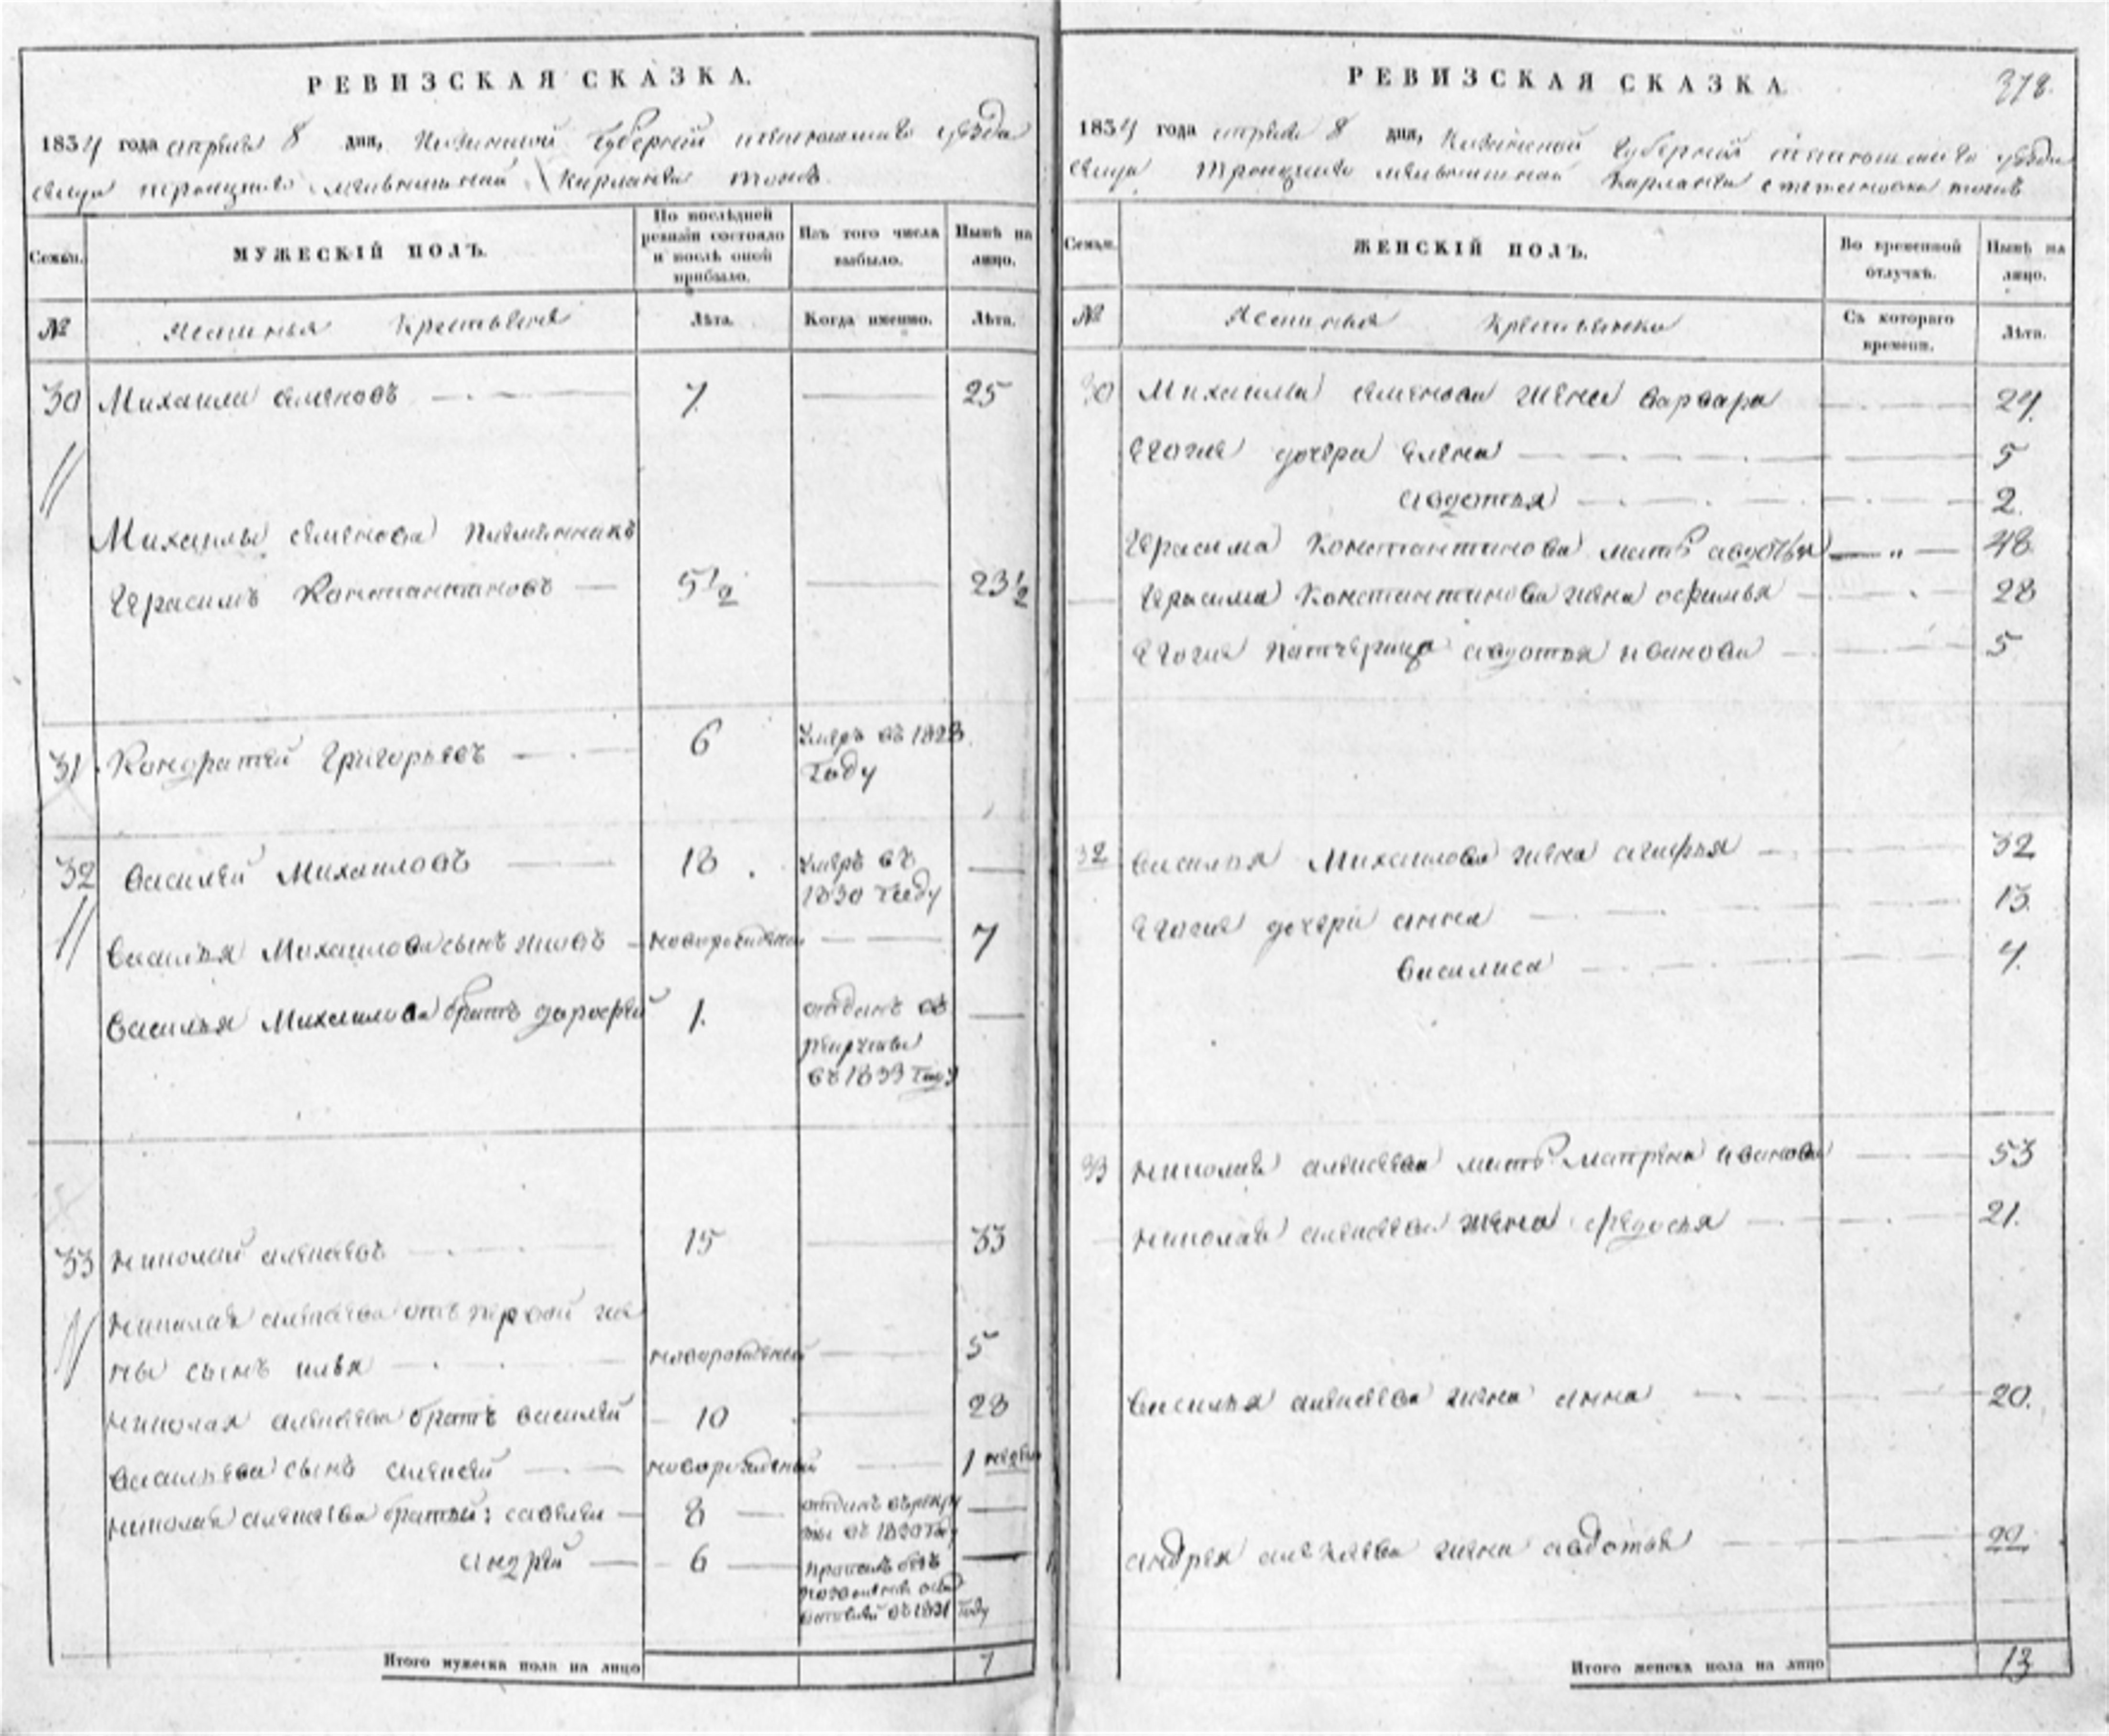 РЕВИЗСКАЯ СКАЗКА.
1834 года апреля 8 дня, Казанской губернии тетюшскаго уезда
села троицкаго Карланга тожъ
Семьи.
МУЖЕСКІЙ ПОЛЪ.
По послѣдней ревизіи состояло и послѣ оной прибыло.
Изъ того числа выбыло.
Нынѣ на лицо.
№
Ясашныя Крестьяня
Лѣта.
Когда именно.
Лѣта.
30 Михаила семеновъ 7. 25
Михаилы семенова племянникъ
Герасимъ Константиновъ 5 1/2 23 1/2
31 Кондратей Григорьевъ 6 умеръ въ 1828
году
32 Василей Михаиловъ 18. умеръ въ
1830 году
Василья Михаилова сынъ новорожденой 7
Василья Михаилова братъ дорофей 1. отданъ въ
рекруты
въ 1833 году
33 Николай алексеевъ 15 33
Николая алексеева отъ первой же
ны сынъ илья новорожденый 5
Николая алексеева братъ василей 10 28
Васильева сынъ алексей новорожденый 1 недели
Николая алексеева братьи: савелей 8 отданъ въ рекру
ты въ 1830 году
андрей 6
въ 1831 году
Итого мужеска пола на лицо 7
РЕВИЗСКАЯ СКАЗКА. 378.
1834 года апреля 8 дня, Казанской губернии тетюшскаго уезда
села Троицкаго Карланга тожъ
Семьи.
ЖЕНСКІЙ ПОЛЪ.
Во временной отлучкѣ.
Нынѣ на лицо.
№
Ясашныя Крестьянки
Съ котораго времени.
Лѣта.
30 Михаила семенова жена варвара 24.
Его же дочери елена 5
авдотья 2.
Герасима Константинова мать авдотья 48
Герасима Константинова жена офимья 28
Его же патчерица авдотья иванова 5
32 Василья Михаилова жена агафья 32
Его же дочери анна 13.
Василиса 4.
33 Николая алексеева мать Матрена иванова 53
Николая алексеева жена федосья 21.
Василья алексеева жена анна 20.
андрея алексеева жена авдотья 22
Итого женска пола на лицо 13